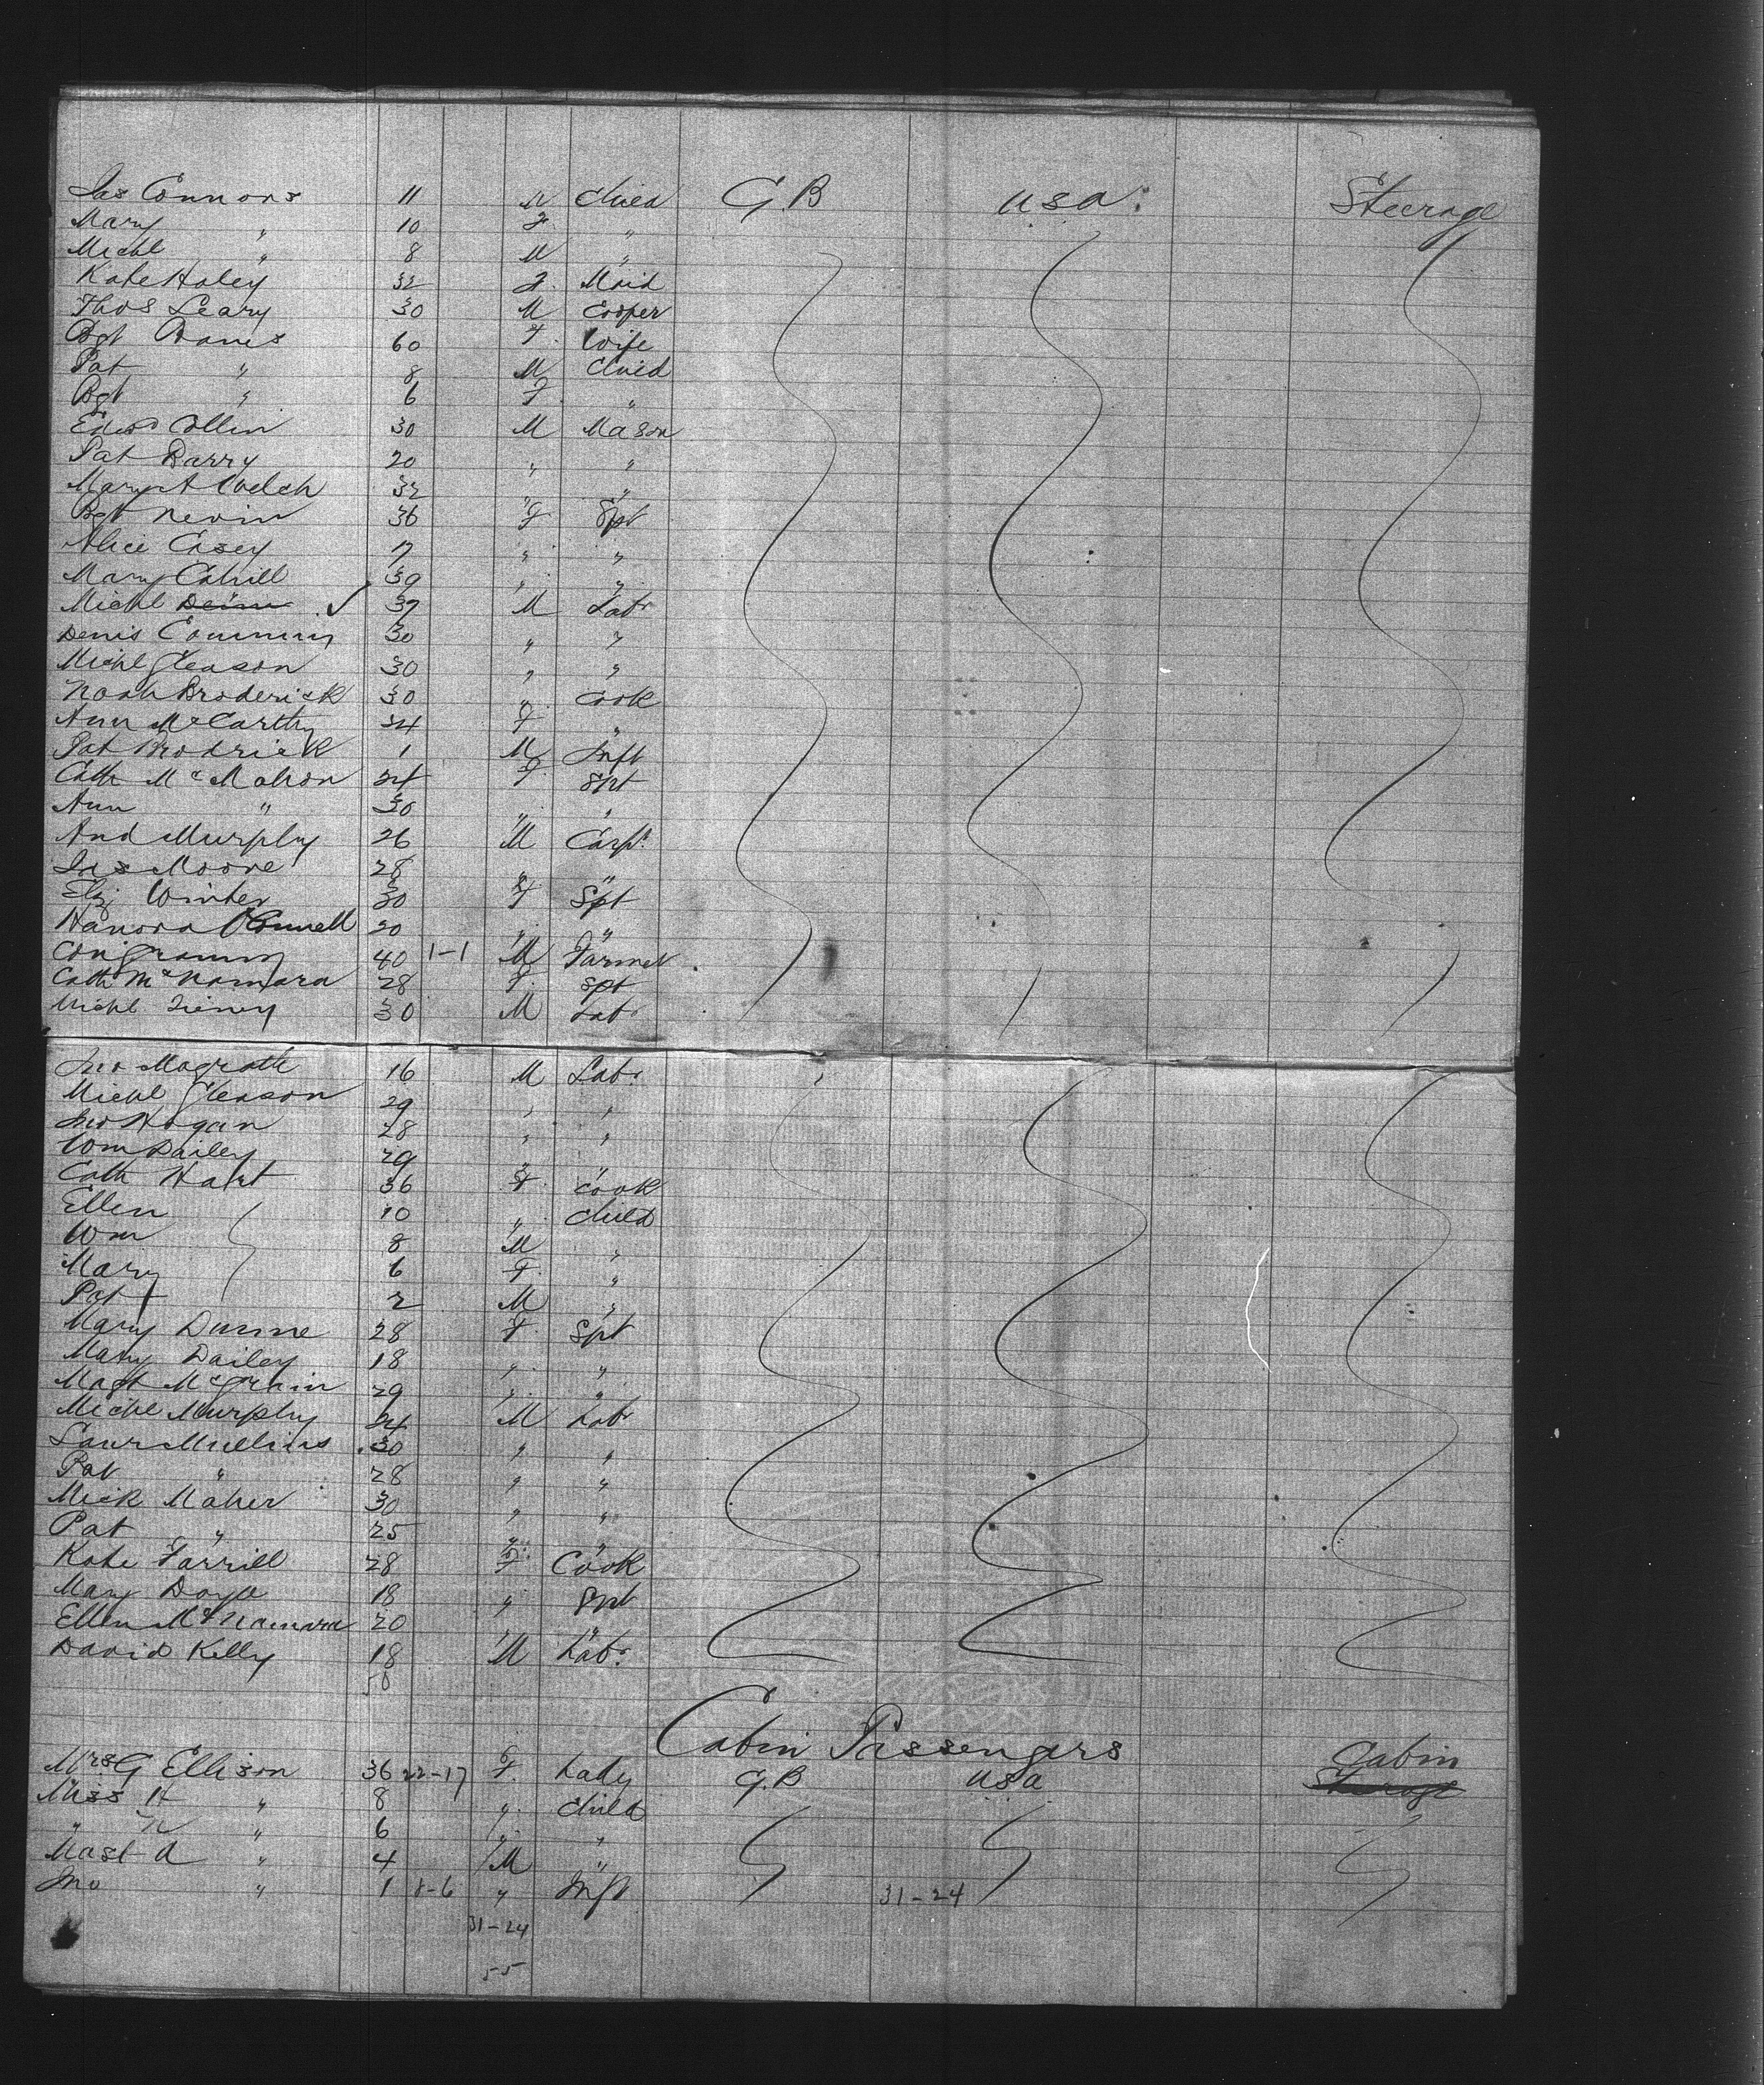 Jas Connors 11 M Child G.B U.S.A. Steerage
Mary " 10 F "
Michl " 8 M "
Kate Haley 32 F. Maid
Thos Leary 30 M Cooper
Bgt 60 F. Wife
Pat " 8 M Child
Bgt " 6 F "
Edwd Collin 30 M Mason
Pat Barry 20 " "
Mary A Welch 32 " "
Bgt Nevin 36 F Spt
Alice Casey 17 " "
Mary Cahill 39 " "
Michl ✓ 37 M Labr
Denis 30 " "
Michl Gleason 30 " "
Noah Broderick 30 " Cook
Ann McCarthy 34 F "
Pat Brodrick 1 M Inft
Cath McMahon 24 F Spt
Ann " 30 " "
And Murphy 26 M Carpr
Jas Moore 28 " "
Eliz Winter 30 F Spt
Hanora O'Connell 20 " "
Con 40 1-1 M Farmer
Cath McNamara 28 F. Spt
Michl 30 M Labr
Jno Magrath 16 M Labr
Michl Gleason 29 " "
Jno Hogan 28 " "
Wm Dailey 29 " "
Cath Hart 36 F. Cook
Ellen 10 " Child
Wm 8 M "
Mary 6 F. "
Pat 2 M "
Mary Dunne 28 F. Spt
Mary Dailey 18 " "
Magt McGrain 29 " "
Michl Murphy 24 M Labr
Laur Mullins 30 " "
Pat " 28 " "
Mick Maher 30 " "
Pat " 25 " "
Kate Farrill 28 F Cook
Mary Doyle 18 " Spt
Ellen McNamara 20 " "
David Kelly 18 M Labr
50
Cabin Passengers
Mrs G Ellison 36 22-17 F. Lady G.B USA Cabin
Miss H " 8 " Child
" " 6 " "
Mast A " 4 M "
Jno " 1 8-6 " Inft 31-24
31-24
55